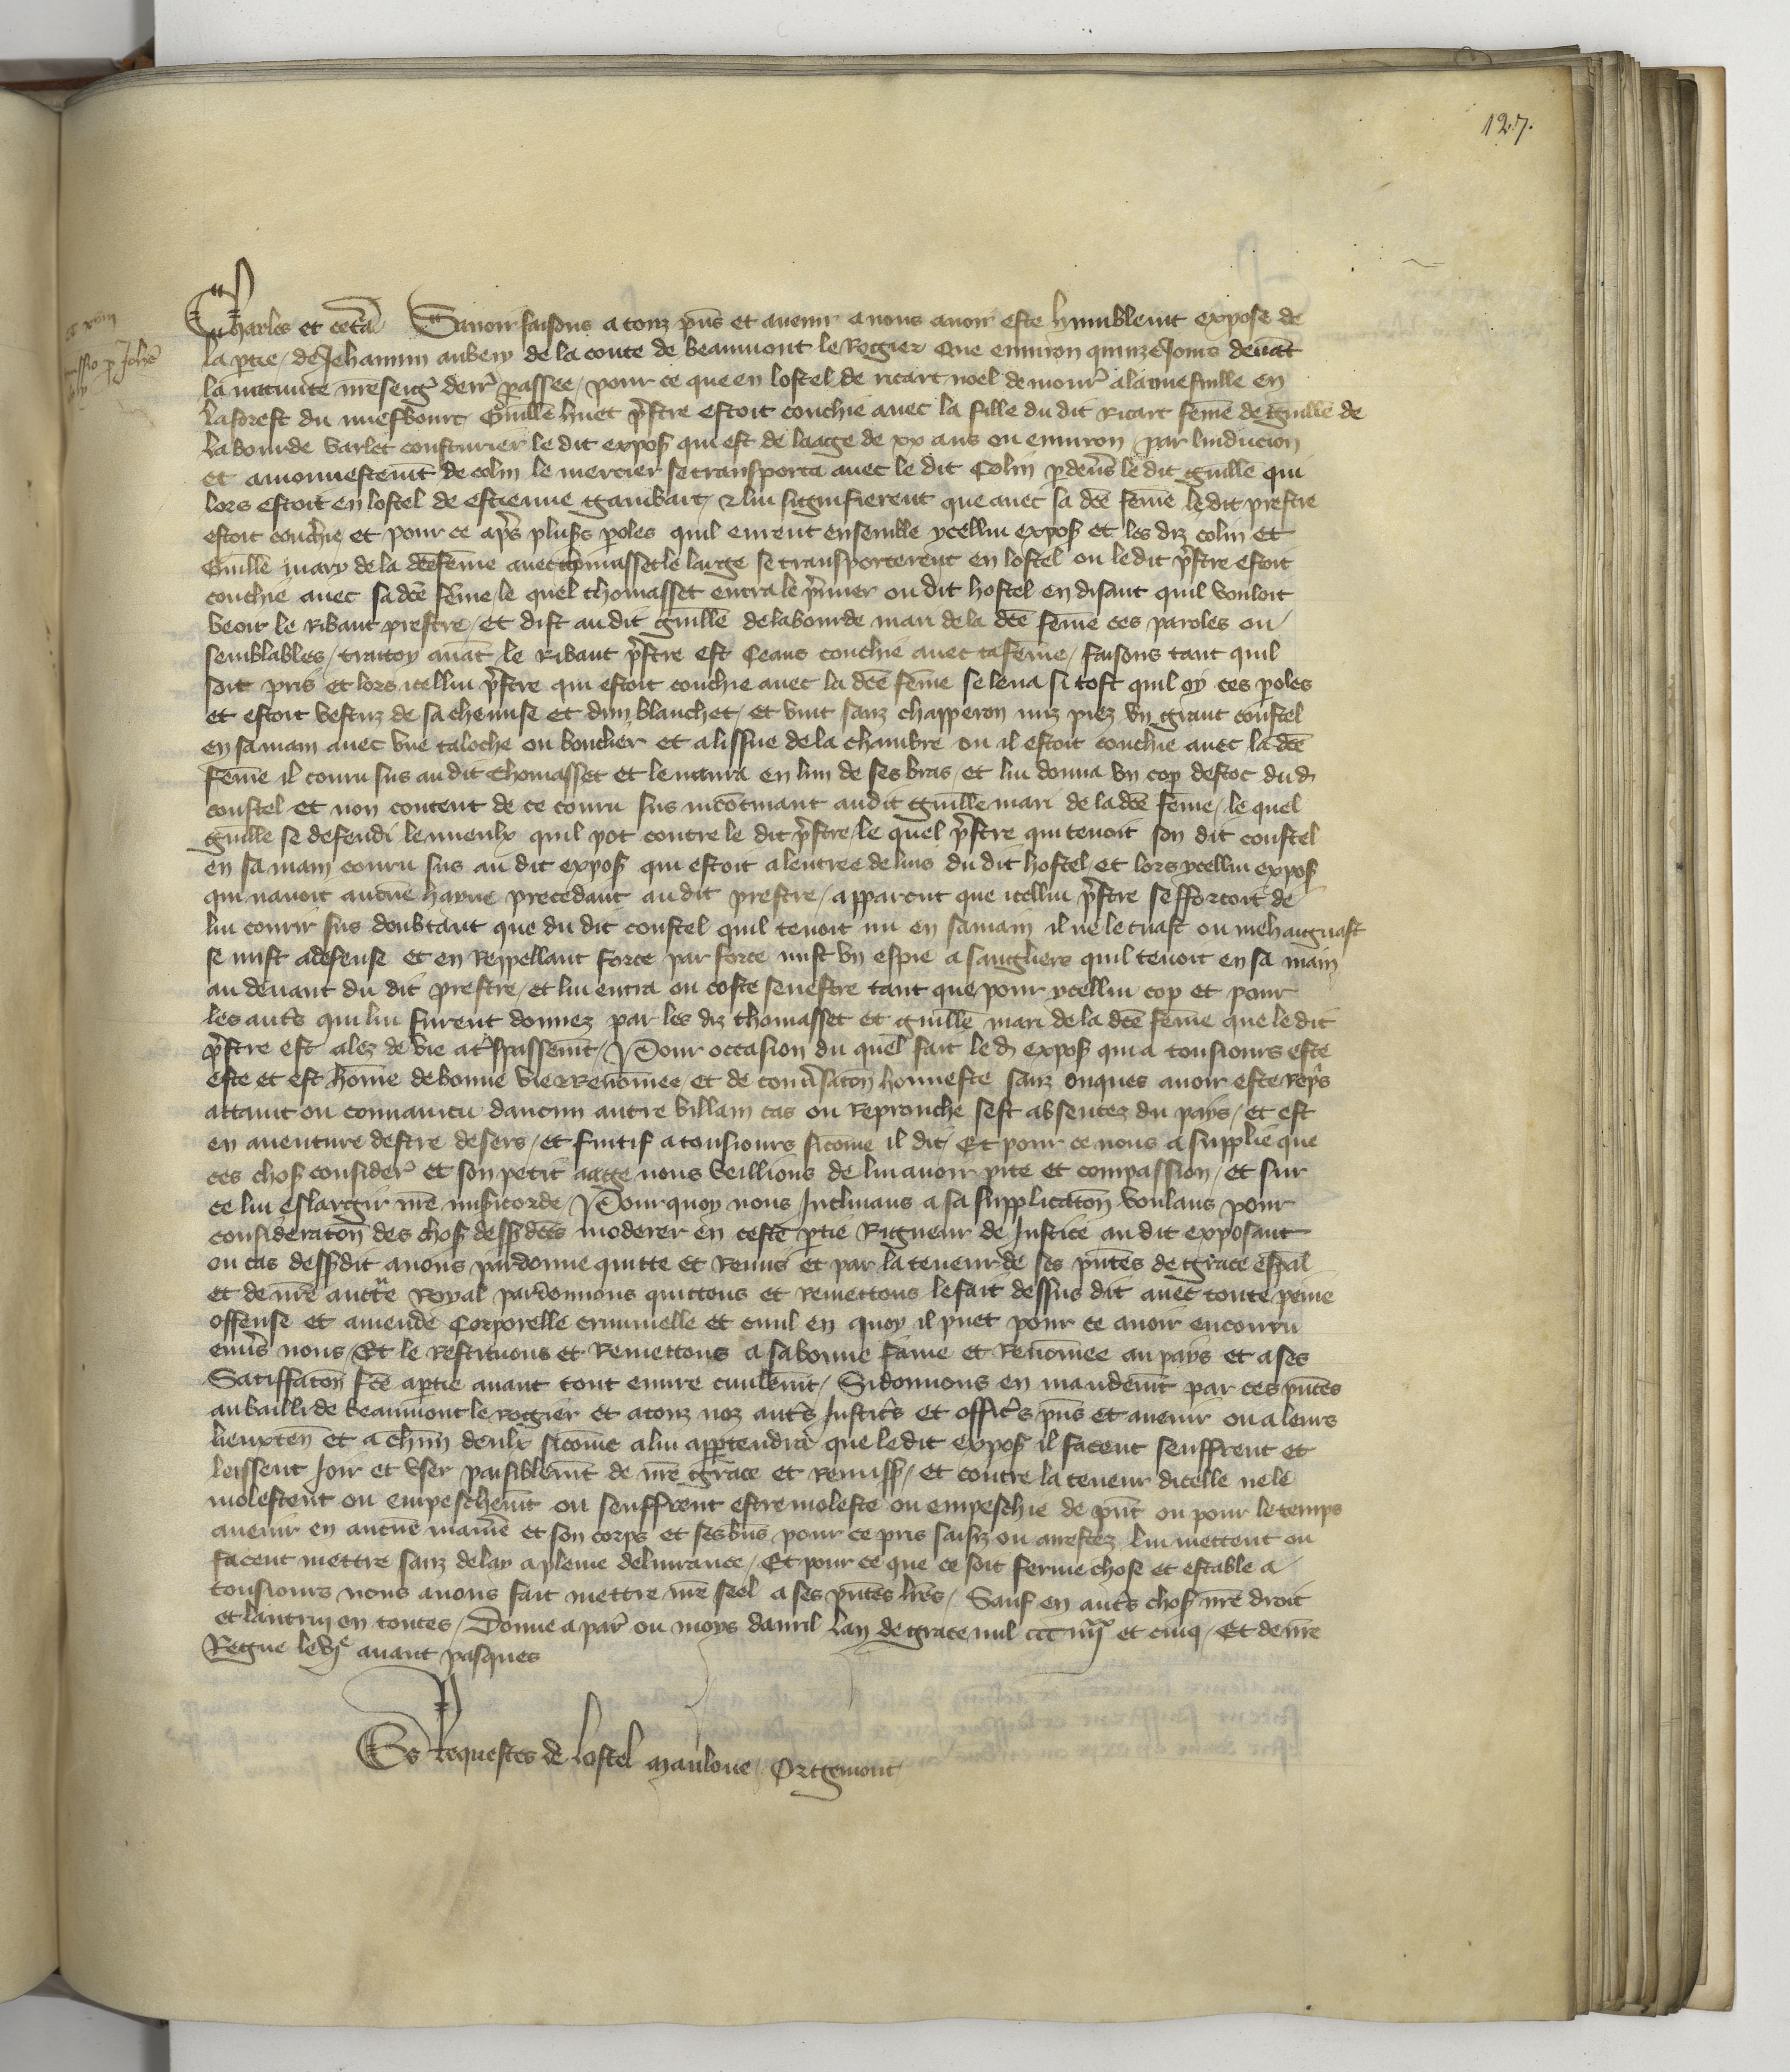 127.
Charles et cetā Sauoir faisons a touz pn̄s et auenir a nous auoir este humblemt̄ expose de
la ptie de Jehannin aubery de la conte de beaumont le Rogier Que enuiron quinze Jours deuāt
la natiuite nr̄eseigr̄ derr̄ passee / pour ce que en lostel de ricart noel demour̄ a la en
la forest du nuefbourc Guillē huet pr̄stre estoit couchie auec la fille du dit Ricart fēme de guillē de
la bourde varlet cousturier le dit expos̄ qui est de laage de xx ans ou enuiron par linducion
et amonnestemt̄ de colin le mercier se transporta auec le dit Colin p deūs le dit guillē qui
lors estoit en lostel de estienne gambart / & lui signifierent que auec sa dcē fēme le dit prestre
estoit couchie / et pour ce apr̄s plus̄s poles quil eurent ensemble ycellui expos̄ et les diz colin et
Guillē mary de la dcē fēme auec thomasset le large se transporterent en lostel ou le dit pr̄stre estoit
couchie auec sa dcē fēme / le quel thomasset entra le pr̄mier ou dit hostel en disant quil vouloit
veoir le Ribaut prestre / et dist au dit guillē de labourde mari de la dcē fēme ces paroles ou
semblables / auāt le Ribaut pr̄stre est Ceans couchie auec ta fēme / faisons tant quil
soit pris et lors icellui pr̄stre qui estoit couchie auec la dcē fēme se leua si tost quil oy ces poles
et estoit vestuz de sa chemise et dun blanchet / et vint sanz chapperon nuz piez vn grant coustel
en sa main auec vne taloche ou bouclier et a lissue de la chambre ou il estoit couchie auec la dcē
fēme il couru sus au dit thomasset et le naura en lun de ses bras / et lui donna vn cop destoc dud̄
coustel et non content de ce couru sus incōtinant audit guillē mari de la dcē fēme / le quel
guillē se defendi le mieulx quil pot contre le dit pr̄stre / le quel pr̄stre qui tenoit son dit coustel
en sa main couru sus au dit expos̄ qui estoit a lentree de luis du dit hostel / et lors ycellui expos̄
qui nauoit aucūe hayne precedant au dit prestre / apparcut que icellui pr̄stre sefforcoit de
lui courir sus doubtant que du dit coustel quil tenoit nu en sa main il ne le tuast ou mehaignast
se mist a defense et en Reppellant force par force mist vn espie a sangliers quil tenoit en sa main
au deuant du dit prestre / et lui entra ou coste senestre tant que pour ycellui cop et pour
les autr̄s qui lui furent donnez par les diz thomasset et guillē mari de la dcē fēme que le dit
pr̄stre est alez de vie a tr̄spassemt̄ / Pour occasion du quel fait le d̄ expos̄ qui a tousiours este
este et est hōme de bonne vie & Renōmee / et de conūsatōn honneste sanz onques auoir este Repr̄s
attaint ou conuaincu daucun autre villain cas ou Reprouche sest absentez du pays / et est
en auenture destre desers / et fuitif a tousiours sicōme il dit / Et pour ce nous a supplie que
ces chos̄ consider̄ et son petit aage nous veillions de lui auoir pite et compassion / et sur
ce lui eslargir nr̄e mis̄icorde / Pourquoy nous Inclinans a sa supplicatōn voulans pour
consideratōn des chos̄ dess̄ dcēs moderer en ceste ptie Rigueur de Justice au dit exposant
ou cas dess̄dit auons pardonne quitte et Remis et par la teneur de ses pn̄tes de grace esp̄al
et de nr̄e auctē Royal pardonnons quittons et remettons le fait dessus dit auec toute peine
offense et amende Corporelle criminelle et ciuil en quoy il puet pour ce auoir encouru
enūs nous / Et le restituons et Remettons a sa bonne fame et Renōmee au pays et a ses
Satiffatōn fcē a ptie auant tout euure ciuilemt̄ / Si donnons en mandemt̄ par ces pn̄tes
au bailli de beaumont le rogier et a touz noz autr̄s Justic̄s et offic̄s pn̄s et auenir ou a leurs
lieuxten̄ et a chūn deulx sicōme a lui appartendra que le dit expos̄ il facent seuffrent et
leissent Joir et vser paisiblemt̄ de nr̄e grace et remiss̄ / et contre la teneur dicelle ne le
molestent ou empeschemt̄ ou seuffrent estre moleste ou empeschie de pn̄t ou pour le temps
auenir en aucūe maniē et son corps et ses bn̄s pour ce pris saisiz ou arrestez lui mettent ou
facent mettre sanz delay a pleine deliurance / Et pour ce que ce soit ferme chose et estable a
tousiours nous auons fait mettre nr̄e seel a ses pn̄tes lr̄es / Sauf en autr̄s chos̄ nr̄e droit
et lautruy en toutes / Donne a par̄ ou moys dauril lan de grace mil ccc iiijxx et cinq / Et de nr̄e
Regne le vjE auant pasques
Es Requestes de lostel Mauloue / Orgemont